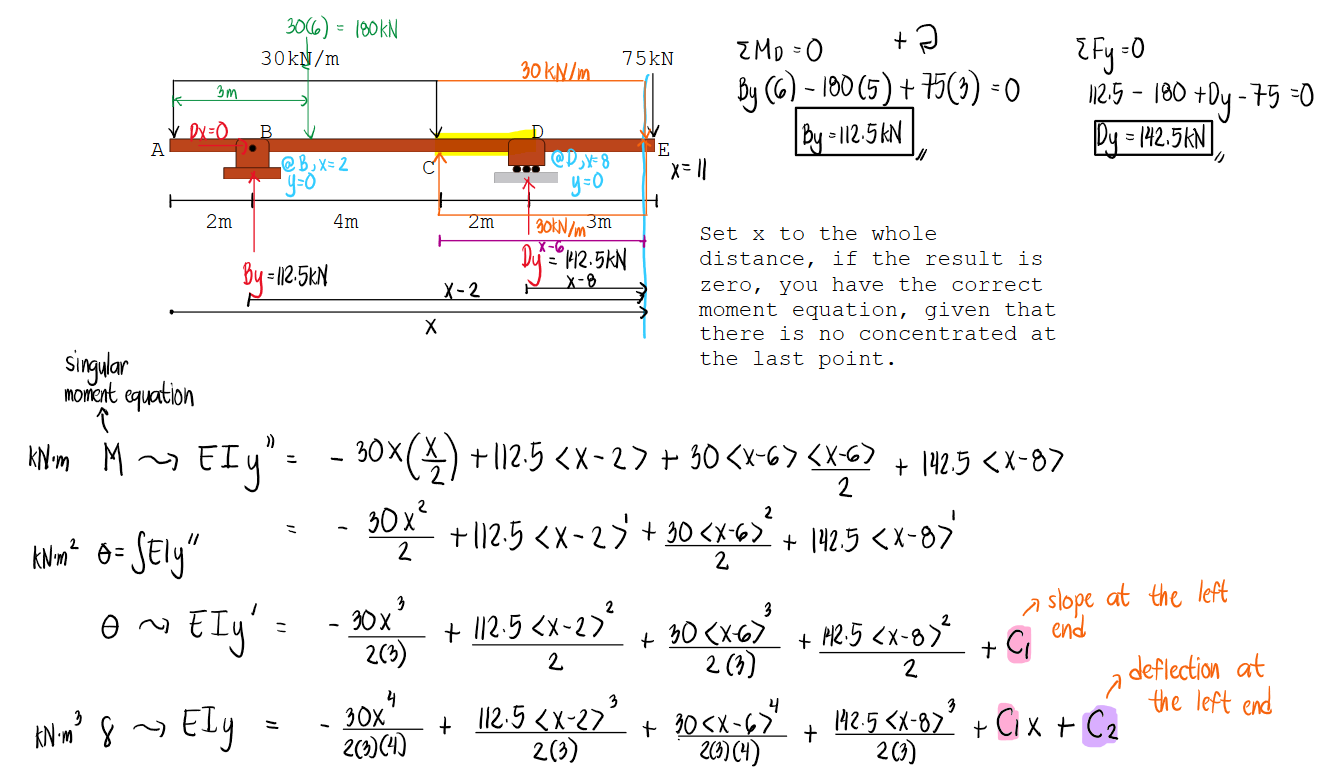 30(6) = 180kN
30kN/m
75kN
30kN/m
3m
Dx=0
A
B
C
D
E
@B, x=2
y=0
@D, x=8
y=0
x=11
2m
4m
2m
3m
30kN/m
x-6
By=112.5kN
Dy=142.5kN
x-8
x-2
x
ΣM_D=0 +↻
By(6) - 180(5) + 75(3) = 0
By=112.5kN
ΣFy=0
112.5 - 180 + Dy - 75 = 0
Dy=142.5kN
Set x to the whole
distance, if the result is
zero, you have the correct
moment equation, given that
there is no concentrated at
the last point.
singular
moment equation
kN·m M ⤳ EIy'' = - 30x(x/2) + 112.5<x-2> + 30<x-6><x-6>/2 + 142.5<x-8>
= - 30x²/2 + 112.5<x-2>¹ + 30<x-6>²/2 + 142.5<x-8>¹
kN·m² θ=∫EIy''
θ ⤳ EIy' = - 30x³/2(3) + 112.5<x-2>²/2 + 30<x-6>³/2(3) + 142.5<x-8>²/2 + C₁
slope at the left
end
kN·m³ δ ⤳ EIy = - 30x⁴/2(3)(4) + 112.5<x-2>³/2(3) + 30<x-6>⁴/2(3)(4) + 142.5<x-8>³/2(3) + C₁x + C₂
deflection at
the left end